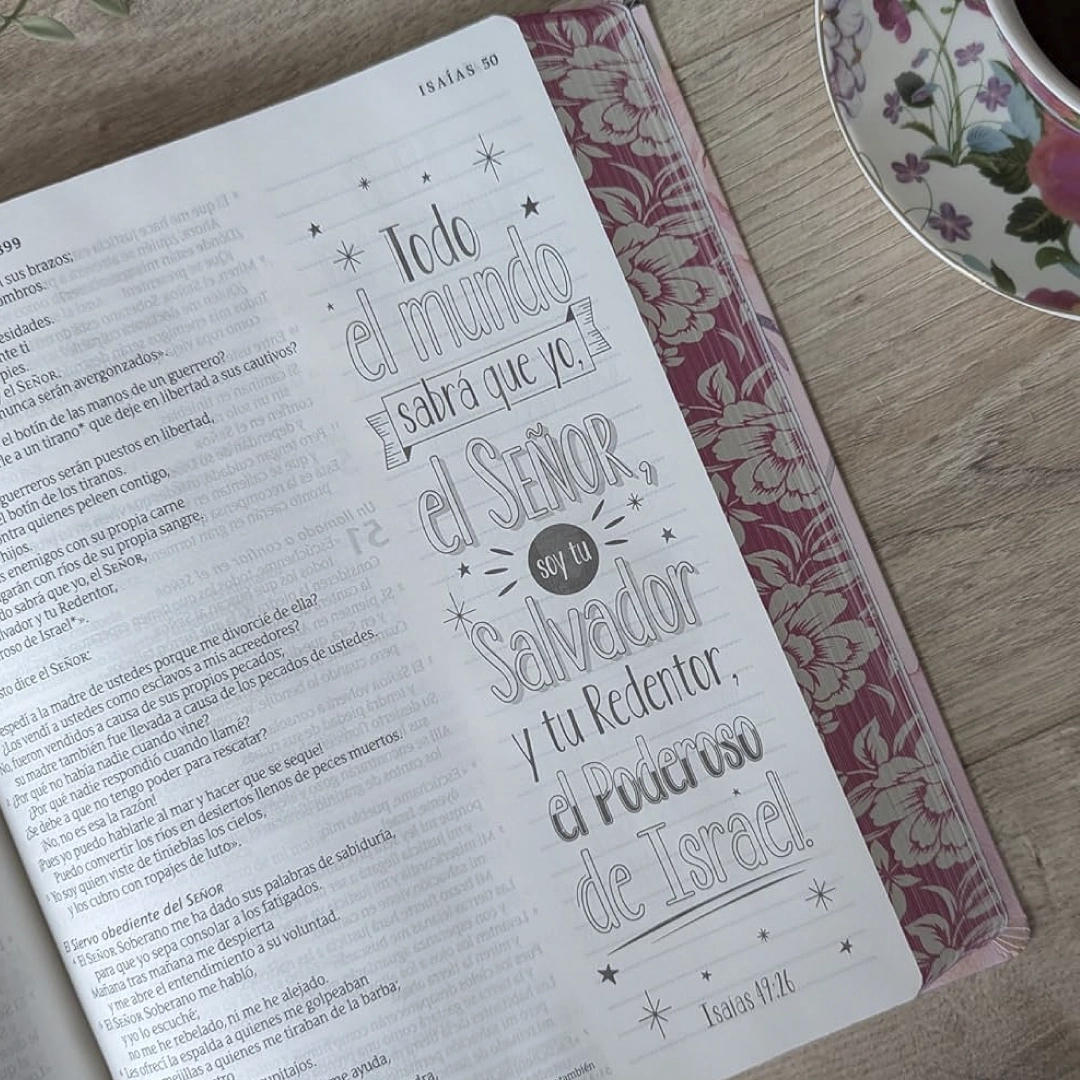 ISAÍAS 50
399
sus brazos;
ombros.
esidades.
nte ti
pies.
el SEÑOR.
nunca serán avergonzados».
el botín de las manos de un guerrero?
le a un tirano* que deje en libertad a sus cautivos?
guerreros serán puestos en libertad,
el botín de los tiranos.
ontra quienes peleen contigo,
hijos.
s enemigos con su propia carne
garán con ríos de su propia sangre.
do sabrá que yo, el SEÑOR,
lvador y tu Redentor,
roso de Israel*».
sto dice el SEÑOR:
espedí a la madre de ustedes porque me divorcié de ella?
¿Los vendí a ustedes como esclavos a mis acreedores?
No, fueron vendidos a causa de sus propios pecados;
su madre también fue llevada a causa de los pecados de ustedes.
2 ¿Por qué no había nadie cuando vine?
¿Por qué nadie respondió cuando llamé?
¿Se debe a que no tengo poder para rescatar?
¡No, no es esa la razón!
¡Pues yo puedo hablarle al mar y hacer que se seque!
Puedo convertir los ríos en desiertos llenos de peces muertos.
3 Yo soy quien viste de tinieblas los cielos,
y los cubro con ropajes de luto».
El Siervo obediente del SEÑOR
4 El SEÑOR Soberano me ha dado sus palabras de sabiduría,
para que yo sepa consolar a los fatigados.
Mañana tras mañana me despierta
y me abre el entendimiento a su voluntad.
5 El SEÑOR Soberano me habló,
y yo lo escuché;
no me he rebelado, ni me he alejado.
6 Les ofrecí la espalda a quienes me golpeaban
mejillas a quienes me tiraban de la barba;
me ayuda,
también
Todo
el mundo
sabrá que yo,
el SEÑOR,
soy tu
Salvador
y tu Redentor,
el Poderoso
de Israel.
Isaías 49:26